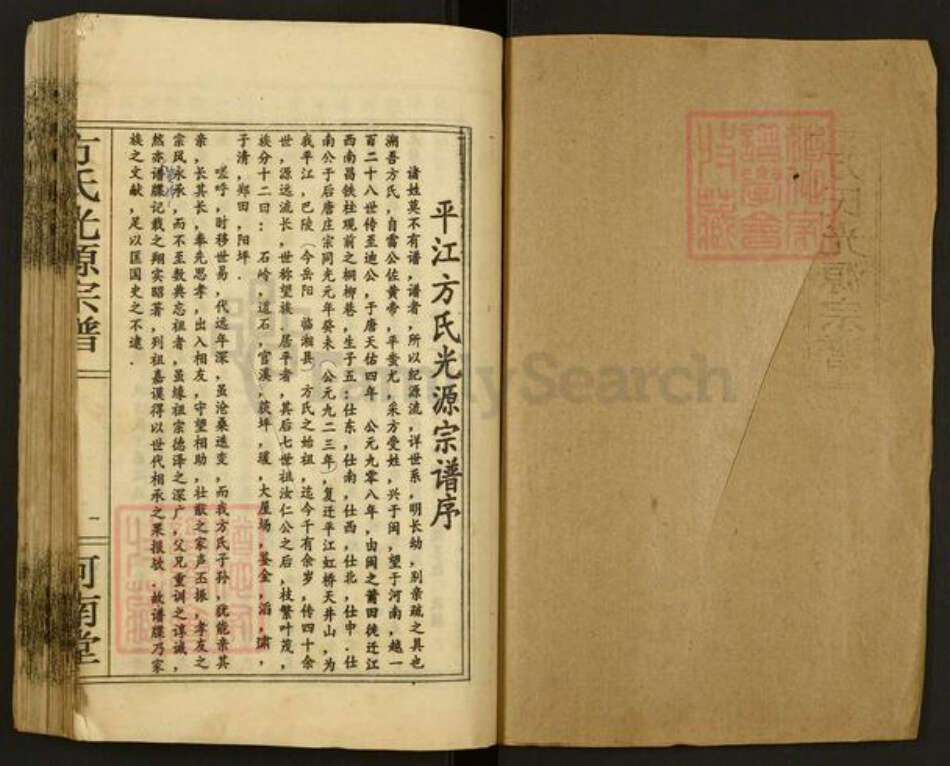 平江方氏光源宗谱序
诸姓莫不有谱，谱者，所以纪源流，详世系，明长幼，别亲疏之具也
溯吾方氏，自雷公佐黄帝，平蚩尤，采方受姓，兴于闽，望于河南，越一
百二十八世传至迪公，于唐天佑四年 公元九零八年，由闽之莆田徙迁江
西南昌铁柱观前之桐柳巷，生子五：仕东，仕南，仕西，仕北，仕中．仕
南公于后唐庄宗同光元年癸未（公元九二三年），复迁平江虹桥天井山，为
我平江，巴陵（今岳阳 临湘县 方氏之始祖，迄今千有余岁，传四十余
世，源远流长，世称望族．居平者，其后七世祖汝仁公之后，枝繁叶茂，
族分十二曰：石岭，道石，官溪，荻坪，瑗，大屋场，鉴金，滔，肃，
于清，郑田，阳坪．
嗟呼，时移世易，代远年深，虽沧桑迭变，而我方氏子孙，犹能亲其
亲，长其长，奉先思孝，出入相友，守望相助，壮猷之家声丕振，孝友之
宗风永承，而不至数典忘祖者，虽缘祖宗德泽之深广，父兄重训之谆诚，
然亦谱牒记载之翔实昭著，列祖嘉谟得以世代相承之果报欤．故谱牒乃家
族之文献，足以匡国史之不逮．
方氏光源宗谱
一
河南堂
FamilySearch